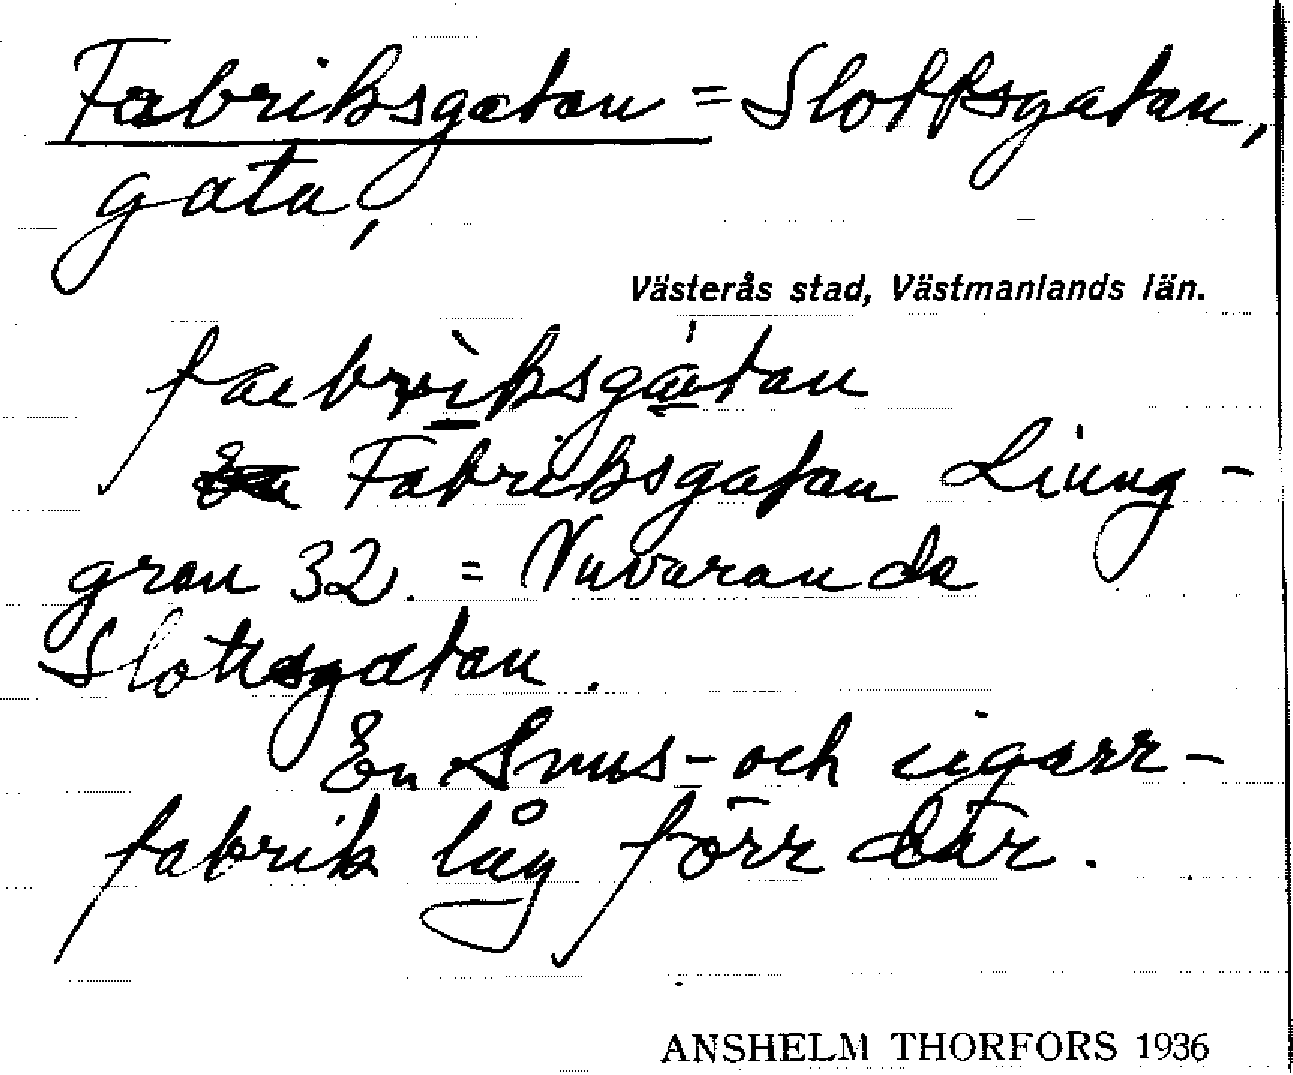 Fabriksgatan = Slottsgatan,
gata,
Västerås stad, Västmanlands län.
faebrìksgátan
Fabriksgatan Ljung-
gren 32. = Nuvarande
Slottsgatan.
En Snus- och cigarr-
fabrik låg förr där.
ANSHELM THORFORS 1936